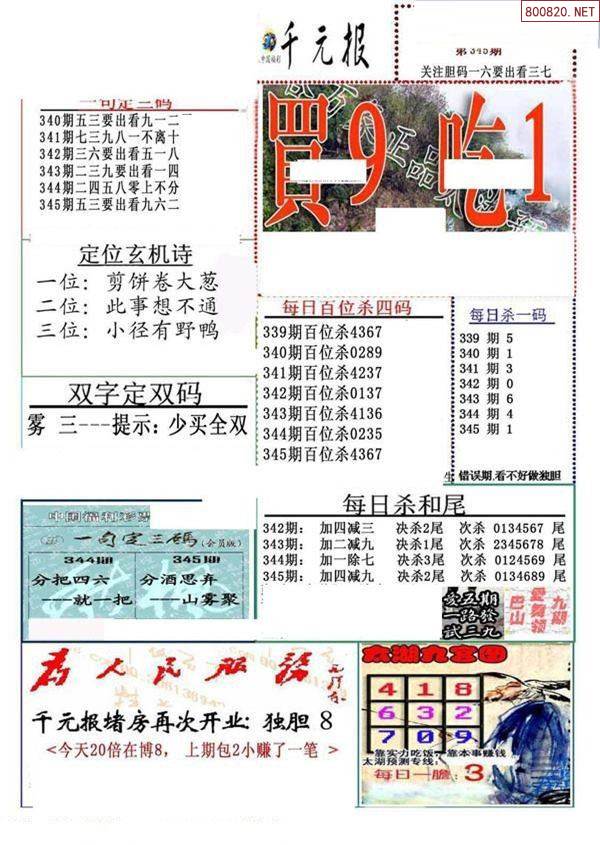 800820.NET
千元报
第345期
关注胆码一六要出看三七
一句定三码
340期五三要出看九一二
341期七三九八一不离十
342期三六要出看五一八
343期二三九要出看一四
344期二四五八零上不分
345期五三要出看九六二
買9吃1
定位玄机诗
一位：剪饼卷大葱
二位：此事想不通
三位：小径有野鸭
双字定双码
雾 三---提示：少买全双
每日百位杀四码
339期百位杀4367
340期百位杀0289
341期百位杀4237
342期百位杀0137
343期百位杀4136
344期百位杀0235
345期百位杀4367
每日杀一码
339 期 5
340 期 1
341 期 3
342 期 0
343 期 6
344 期 4
345 期 1
错误期,看不好做独胆
中国福利彩票
一句定三码(会员版)
344期
分把四六
---就一把
345期
分酒思弃
---山雾聚
每日杀和尾
342期： 加四减三 决杀2尾 次杀 0134567 尾
343期： 加二减九 决杀1尾 次杀 2345678 尾
344期： 加一除七 决杀3尾 次杀 0124569 尾
345期： 加四减九 决杀2尾 次杀 0134689 尾
爱五期
一路發
试三九
为人民服务
千元报堵房再次开业: 独胆 8
<今天20倍在博8， 上期包2小赚了一笔 >
太湖九宫图
4 1 8
6 3 2
7 0 9
靠实力吃饭，靠本事赚钱
太湖预测专线:
每日一胆: 3